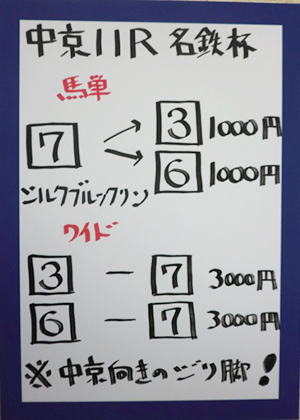 中京11R 名鉄杯
馬単
7 → 3 1000円
→ 6 1000円
シルクブルックリン
ワイド
3 − 7 3000円
6 − 7 3000円
※中京向きのジリ脚!